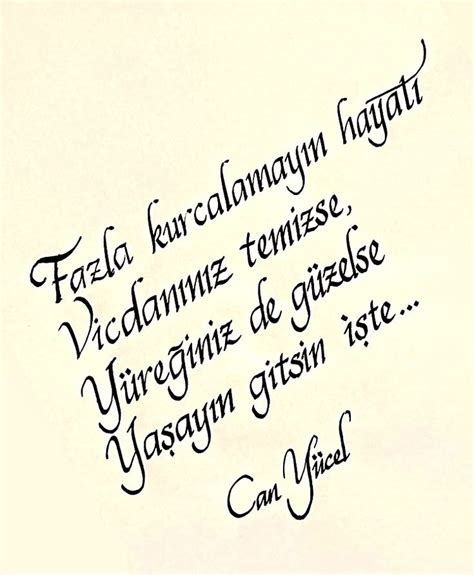 Fazla kurcalamayın hayatı
Vicdanınız temizse,
Yüreğiniz de güzelse
Yaşayın gitsin işte...
Can Yücel